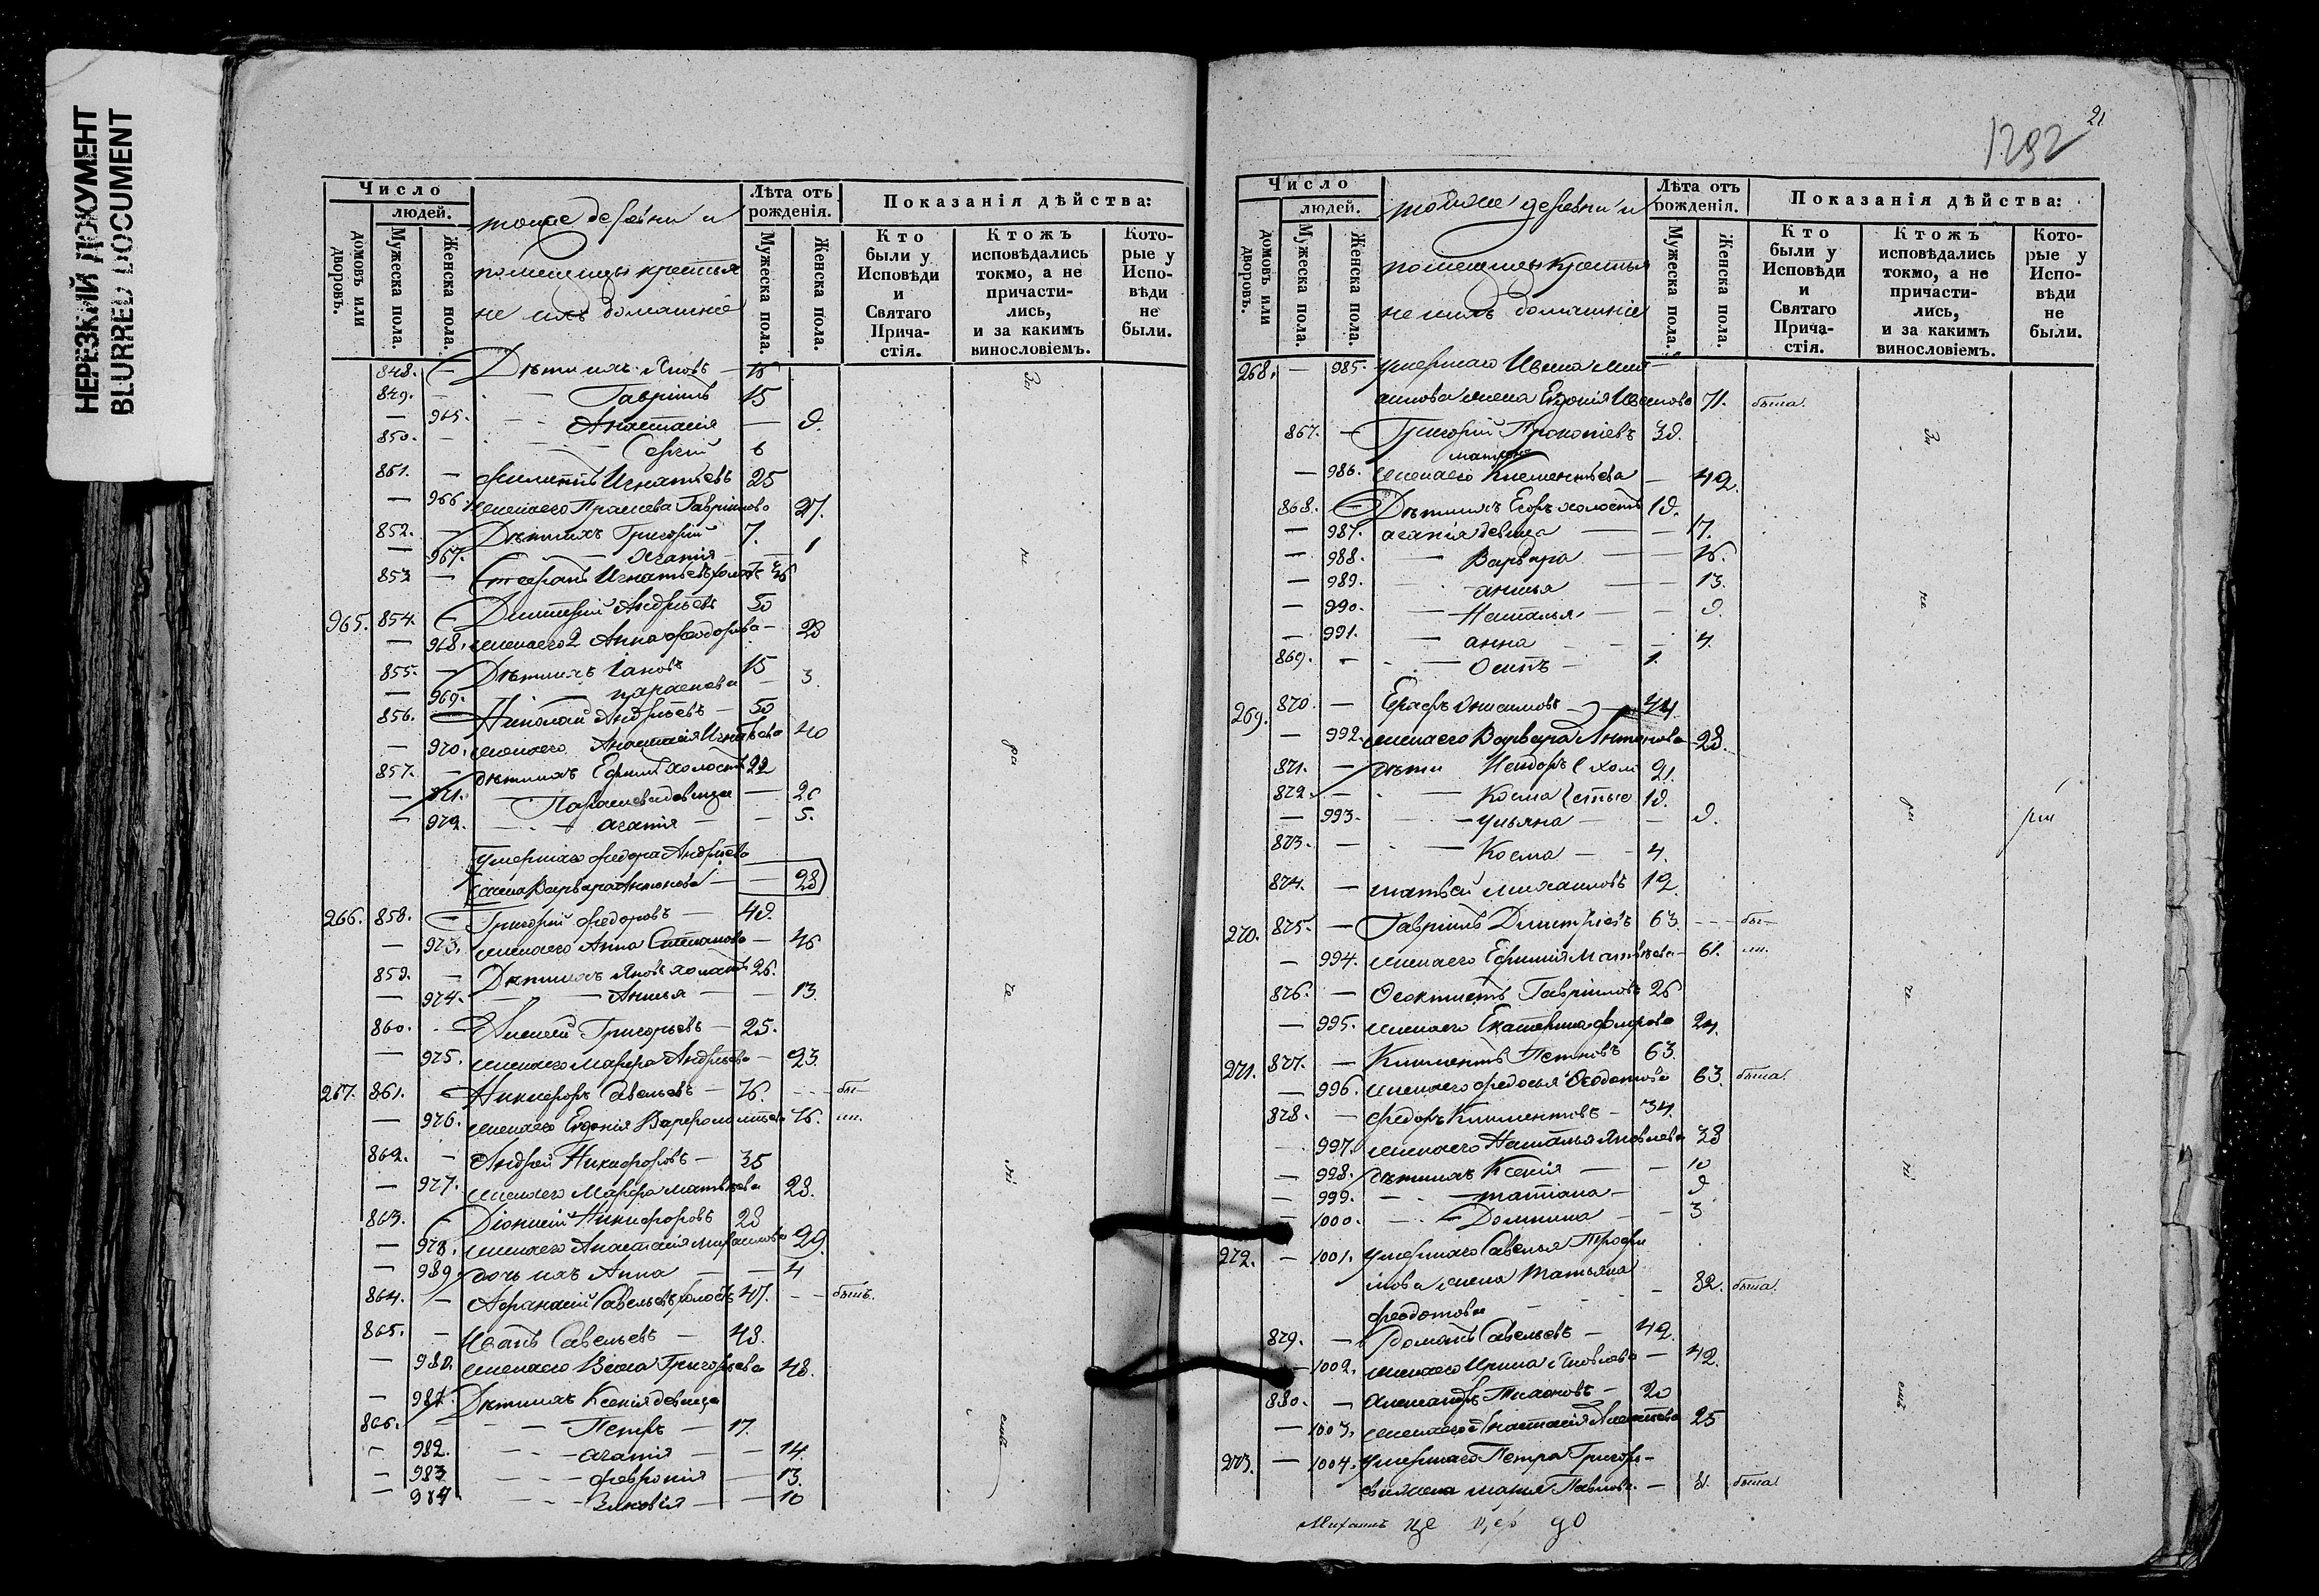 НЕРЕЗКИЙ ДОКУМЕНТ
BLURRED DOCUMENT
Число
людей.
домовъ или дворовъ.
Мужеска пола.
Женска пола.
тояже деревни и
помещицы крестья
не ихъ домашнiе
Лѣта отъ рожденiя.
Мужеска пола.
Женска пола.
Показанiя дѣйства:
Кто были у Исповѣди и Святаго Прича-стiя.
Ктожъ исповѣдались токмо, а не причасти-лись, и за какимъ винословiемъ.
Кото-рые у Испо-вѣди не были.
848. — Дѣти ихъ Яковъ —
849. — Гаврiилъ 15
— 965. Анастасiя — 9.
850. — Сергiй 6
851. — Филиппъ Игнатьевъ 25
— 966. жена его Праскева Гаврiилова 27.
852. — Дѣти ихъ Григорiй 7.
— 967. — Агапiя — 1
853 — Стефанъ Игнатьевъ холостъ
965. 854. — Димитрiй Андрѣевъ 50
— 968. жена его 2 Анна Феодорова — 28
855. — Дѣти ихъ Iаковъ 15
— 969. — параскева — 3
856. — Николай Андрѣевъ — 50
— 970. жена его Анастасiя Игнатьева 40
857. — дѣти ихъ Ефимъ холостъ 22
— 971. — Параскева девица — 20
— 972. — агапiя — 5.
Умершаго Федора Андрѣева
жена Варвара Антонова — 28
266. 858. — Григорiй Федоровъ — 49.
— 973. жена его Анна Степанова — 46
859. — Дѣти ихъ Яковъ холостъ 26.
— 974. — Анисья — 13.
860. — Алексей Григорьевъ — 25.
— 975. жена его Марфа Андрѣева — 23.
267. 861. — Никифоръ Савельевъ — 76. — бы-
— 976. жена его Евдокiя Варфоломѣева 76. ли.
862. — Андрей Никифоровъ — 35
— 977. жена его Марфа матвѣева 28.
863. — Дiонисiй Никифоровъ 28
— 978. жена его Анастасiя михаилова 29.
— 989. дочь ихъ Анна — 4
864. — Афанасiй Савельевъ холостъ 47. — былъ.
865. — Иванъ Савельевъ — 48.
— 980. жена его Васса Григорьева 48.
— 981. Дѣти ихъ Ксенiя девица
866. — Петръ — 17.
— 982. — агапiя — 14.
— 983 — феврония — 13.
— 984 — Зиновiя — 10
21
1292
Число
людей.
домовъ или дворовъ.
Мужеска пола.
Женска пола.
тояже деревни и
помещицы Крестья
не ихъ домашнiе
Лѣта отъ рожденiя.
Мужеска пола.
Женска пола.
Показанiя дѣйства:
Кто были у Исповѣди и Святаго Прича-стiя.
Ктожъ исповѣдались токмо, а не причасти-лись, и за какимъ винословiемъ.
Кото-рые у Испо-вѣди не были.
268. — 985. умершаго Ивана
жена Евдокiя Иванова 71. была.
867. — Григорiй Прокопiевъ 39.
— 986. жена его Климентьева — 42.
868. — Дѣти ихъ Егоръ холостъ 19.
— 987. агапiя девица — 17.
— 988. — Варвара — 16.
— 989. — анисья — 13.
— 990. — Наталья — 9.
— 991. — анна — 4.
869. — Осипъ — 1.
269. 870. — Евграфъ Анисимовъ — 44
— 992. жена его Варвара Антонова 28.
871. — дѣти Исидоръ ( холо 21.
872. — Косма ( стые 19.
— 993. — ульяна — 9.
873. — Косма — 4.
874. — матвей михаиловъ 12.
270. 875. — Гаврiилъ Димитрiевъ 63 — бы-
— 994. жена его Ефимiя Матвѣева — 61. ли.
876. — Феоктистъ Гаврiиловъ 26
— 995. жена его Екатерина фирсова 24.
271. 877. — Климентъ Петровъ 63.
— 996. жена его федосья Феодотова 63. была.
878. — Федоръ Климентовъ — 34.
— 997. жена его Наталья Яковлева 38
— 998. дѣти ихъ Ксенiя — 10
— 999. — татiана — 9
— 1000. — Домника — 3
272. — 1001. умершаго Савелья Трофи
мова жена Татьяна
феодотова — 82. была.
879. — Романъ Савельевъ — 42.
— 1002. жена его Ирина Яковлева — 42.
880. — Александръ Тихоновъ — 20
— 1003. жена его Анастасiя 25
273. — 1004. умершаго Петра Григорь-
ева жена марья Павлова — была.